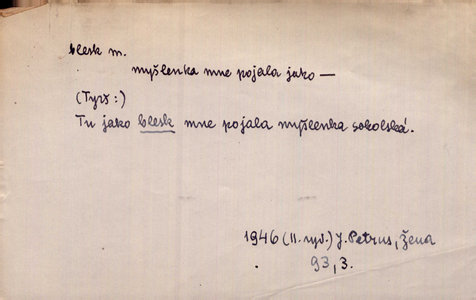 blesk m.
myšlenka mne pojala jako —
(Tyrš:)
Tu jako blesk mne pojala myšlenka sokolská.
1946 (II. vyd.) J. Petrus, žena
93, 3.